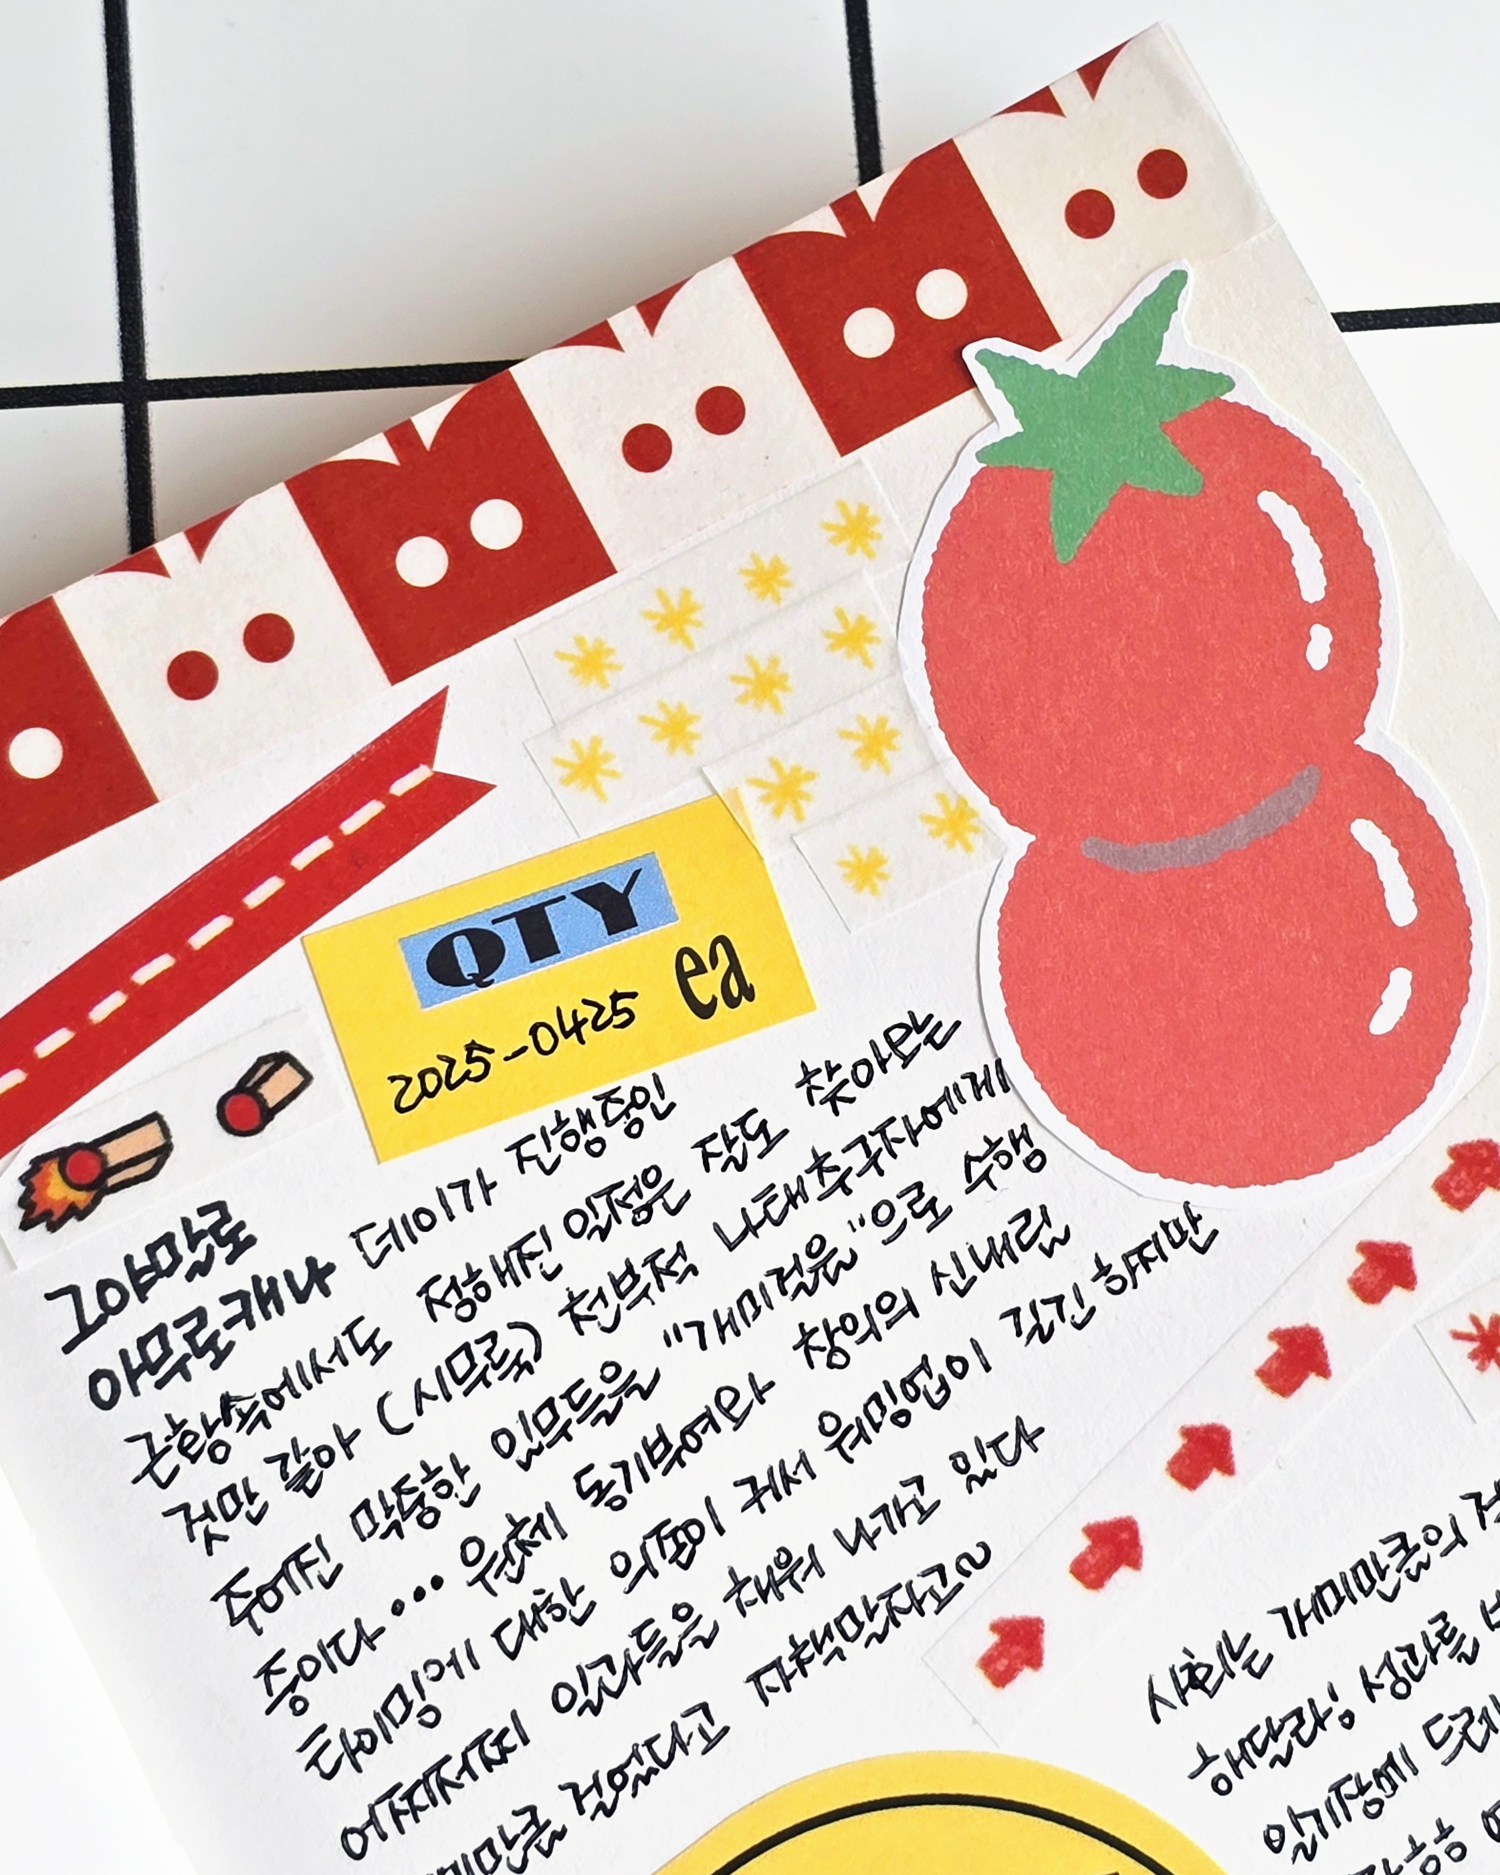 QTY
ea
2025-0425
그야말로
아무로캐나 데이가 진행중인
근황속에서도 정해진 일정은 잘도 찾아오는
것만 같아 (시무룩) 천부적 나태추구자에게
주어진 막중한 임무들을 "개미걸음"으로 수행
중이다... 원체 동기부여와 창의의 신내림
타이밍에 대한 의존이 커서 워밍업이 길긴 하지만
어찌저찌 일과들을 채워 나가고 있다
걸었다고 자책말자고~
사회는 개미만큼의
해달라! 성과를
일기장에